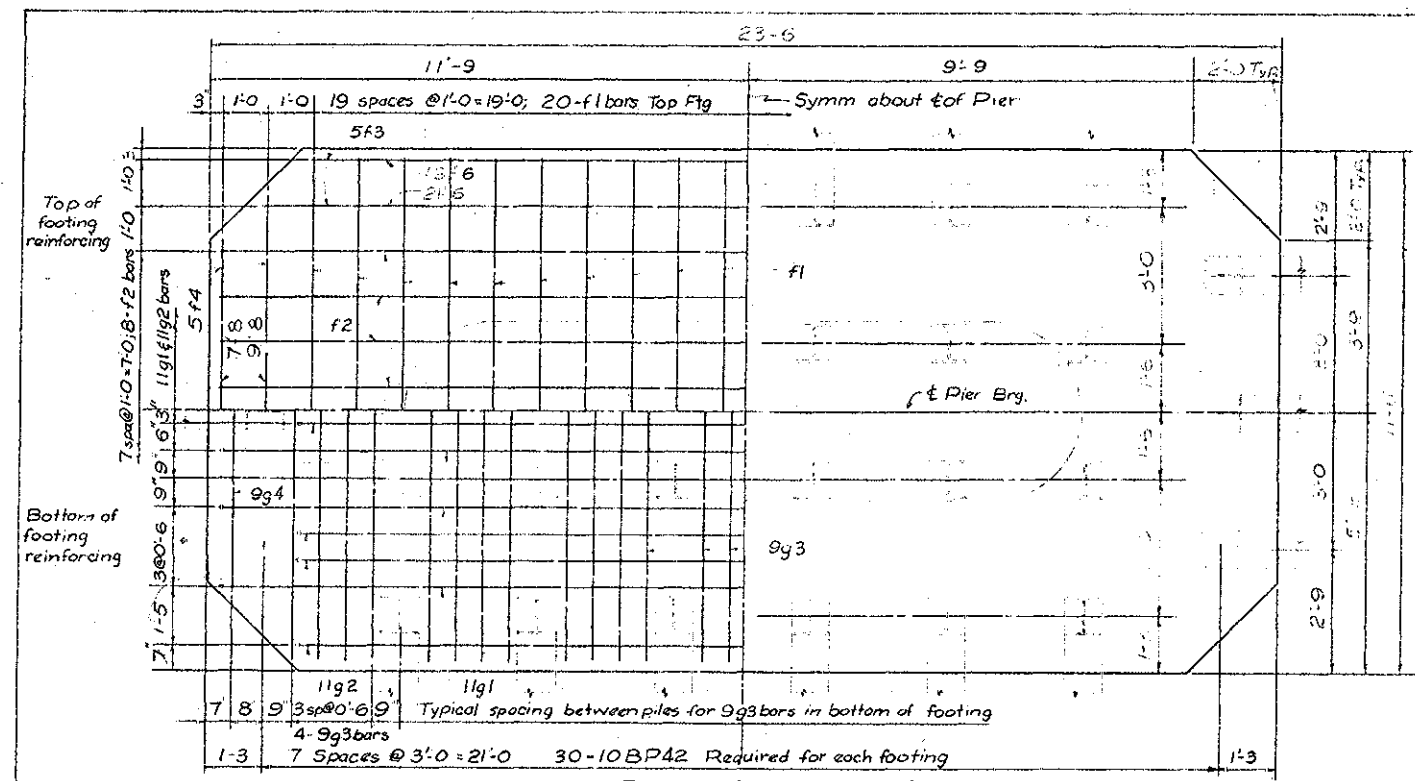 23-6
11'-9
9'-9
2'-0 Typ.
3" 1'-0 1'-0 19 spaces @1'-0=19'-0; 20-f1 bars Top Ftg
Symm about ℄ of Pier
5f3
21'-6
Top of
footing
reinforcing
7 spa@1'-0=7'-0; 8-f2 bars 1'-0 1'-0 3"
11g1 & 11g2 bars
5f4
f2
f1
7'-8
9'-8
3'-0
1'-6
2'-9
2'-0 Typ.
3'-9
℄ Pier Brg.
3" 6" 9" 9" 3@0'-6 1'-5 7"
9g4
Bottom of
footing
reinforcing
9g3
3'-0
2'-9
11g2
11g1
7" 8" 9" 3sp@0'-6 9" Typical spacing between piles for 9g3 bars in bottom of footing
4-9g3 bars
1-3 7 Spaces @ 3'-0 = 21'-0 30-10BP42 Required for each footing 1'-3